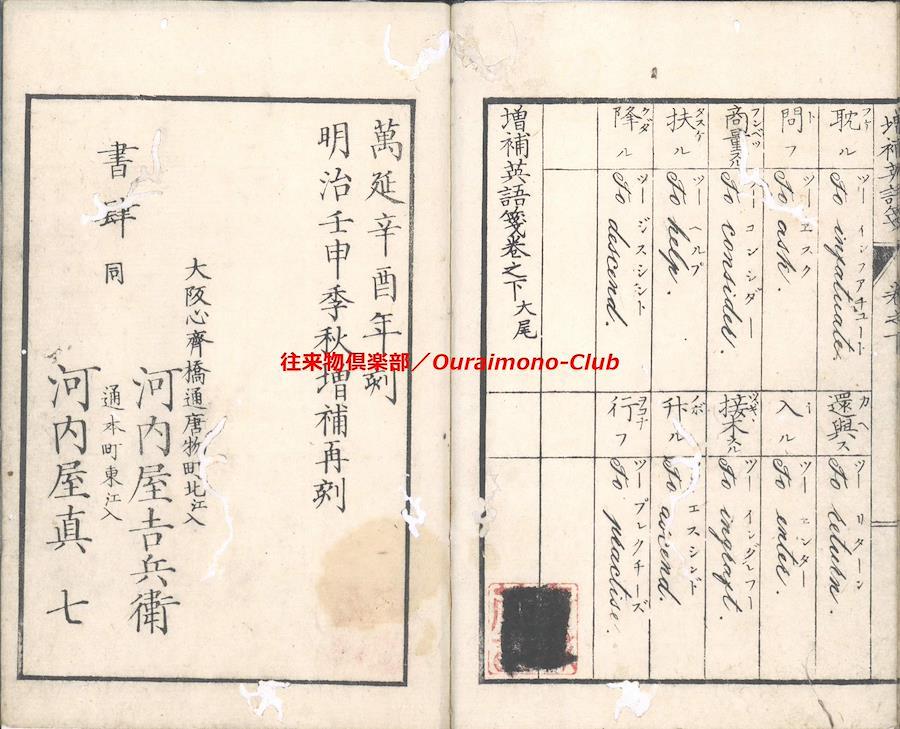 増補英語箋 卷之下
耽ル フケ
ツー インフアチユート
To infatuate.
還與ス カヘ
ツー リターン
To return.
問フ ト
ツー エスク
To ask.
入ル イ
ツー エンター
To enter.
商量スル フンベツ
ツー コンシダー
To consider.
接木スル ツギ
ツー イングレフー
To ingraft.
扶ル タスケ
ツー ヘルプ
To help.
升ル ノボ
ツー エスシンド
To ascend.
降ル クダ
ツー ジスシント
To descend.
行フ ヲコナ
ツー プレクチーズ
To practise.
増補英語箋卷之下大尾
萬延辛酉年刻
明治壬申季秋増補再刻
大阪心齊橋通唐物町北江入
書肆 河内屋吉兵衛
同 通本町東江入
河内屋真七
往来物倶楽部／Ouraimono-Club